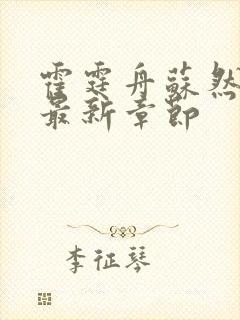 霍霆舟蘇然
最新章節
李征琴